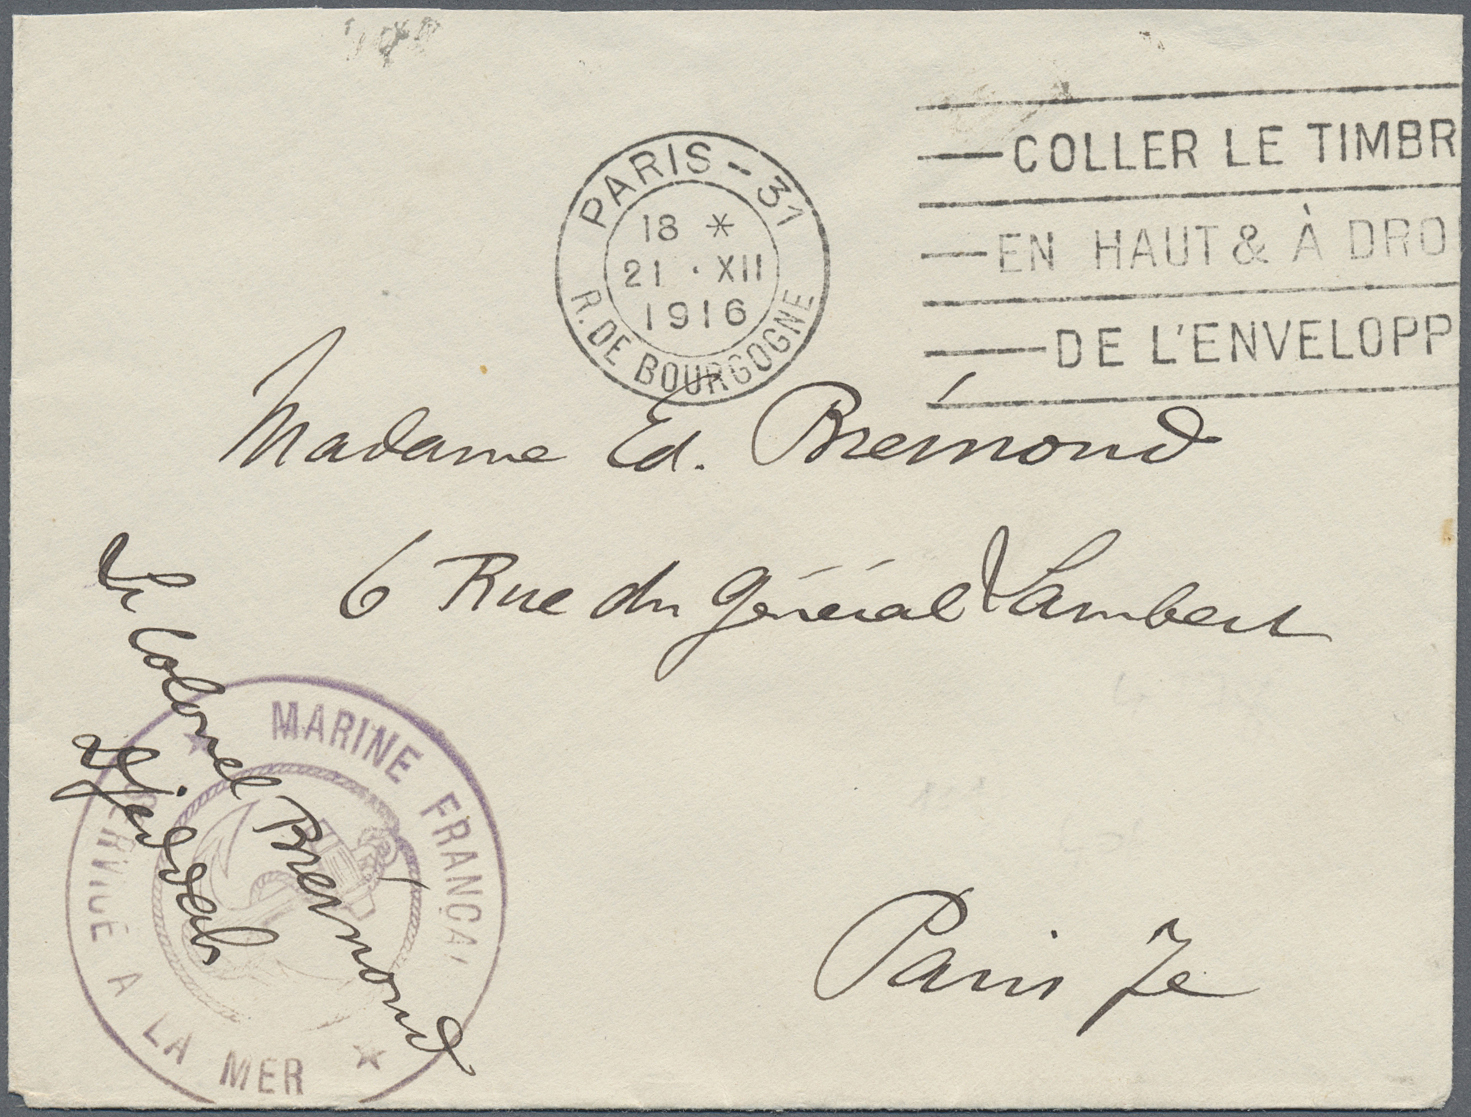 PARIS - 31
18 *
21 · XII
1916
R. DE BOURGOGNE
COLLER LE TIMBR
EN HAUT & À DROI
DE L'ENVELOPP
Madame Ed. Brémond
6 Rue du Général Lambert
Paris 7e
Le Colonel Brémond
Djeddah
MARINE FRANÇAI
SERVICE A LA MER